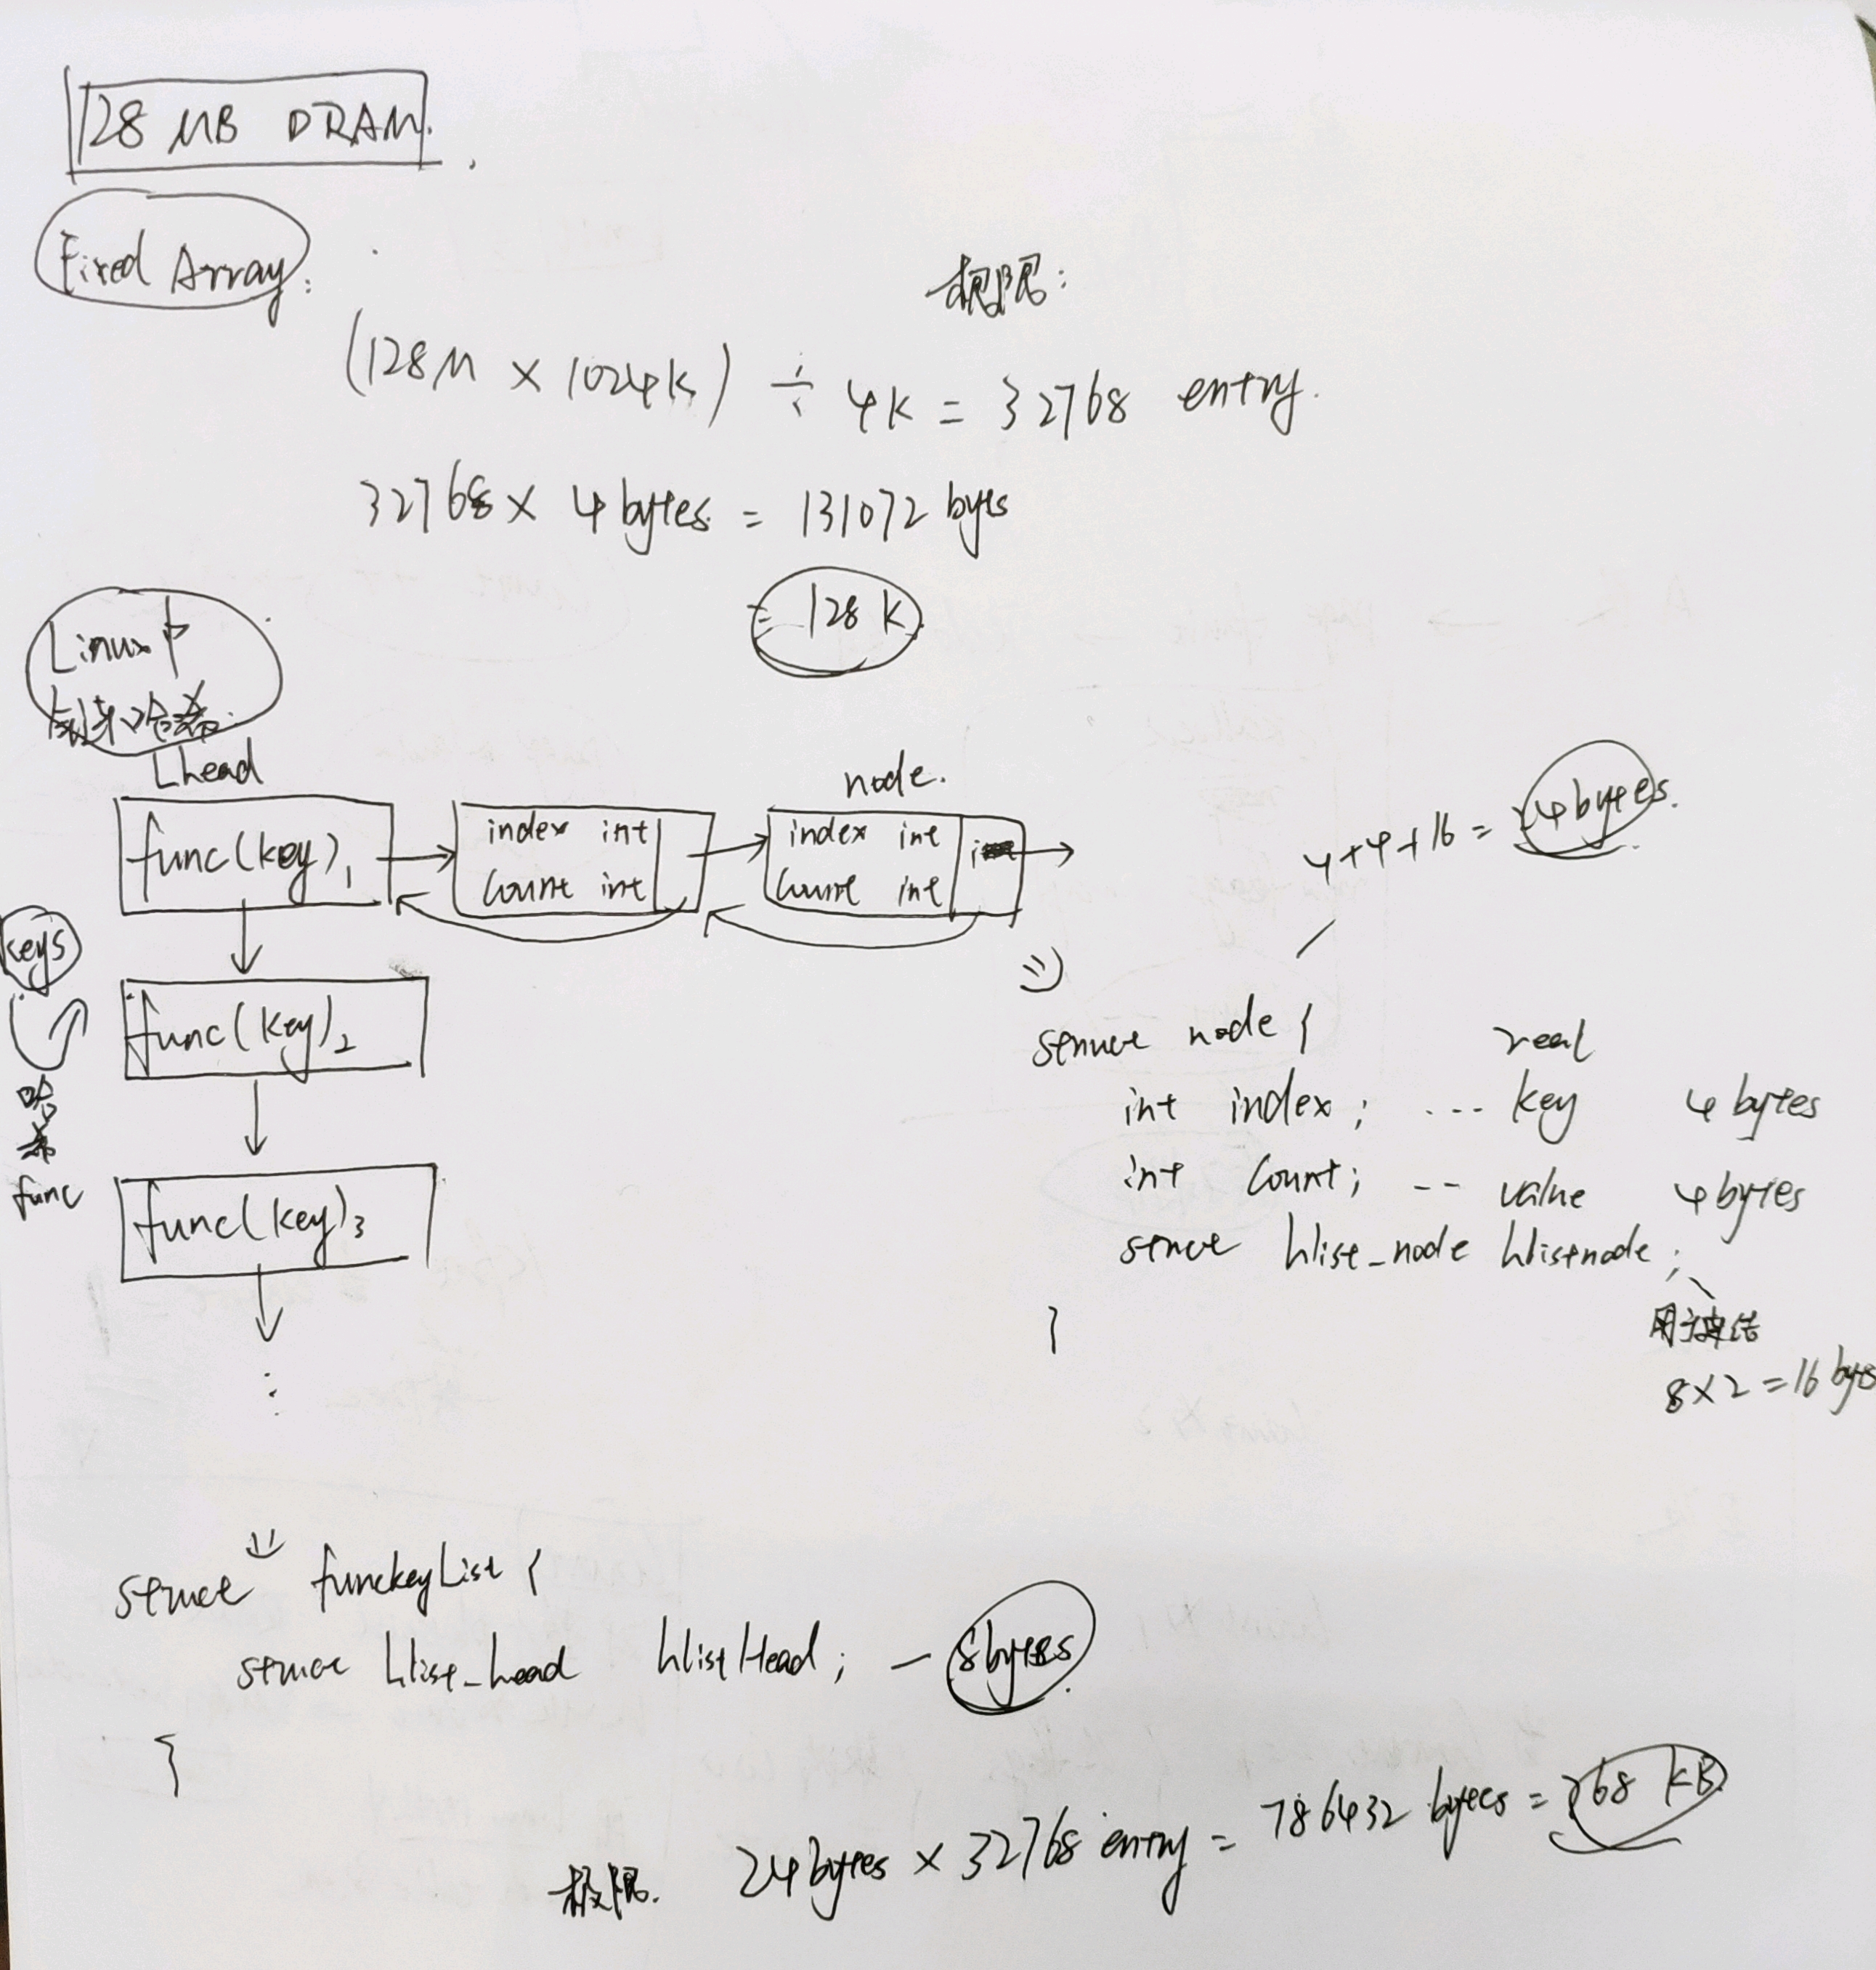 128 MB DRAM.
Fixed Array:
极限:
(128M × 1024K) ÷ 4K = 32768 entry.
32768 × 4 bytes = 131072 byts
= 128 K
Linux中
哈希
Lhead
node.
func(key)1
index int
count int
index int
count int
4+4+16 = 24 bytes.
keys
func(key)2
哈希
func
func(key)3
struct node {
real
int index; ... key 4 bytes
int count; -- value 4 bytes
struct hlist_node hlistnode;
8 × 2 = 16 byts
}
struct funckeyList {
struct hlist_head hlistHead; — 8bytes
}
极限. 24 bytes × 32768 entry = 786432 bytes = 768 KB